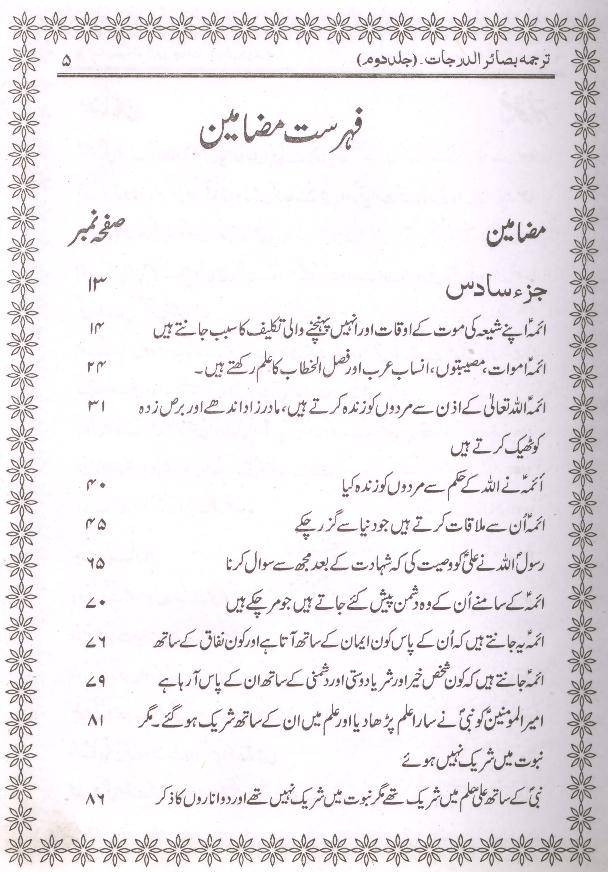 ترجمہ بصائر الدرجات۔ (جلد دوم) ۵
فہرست مضامین
مضامین صفحہ نمبر
جزء سادس ۱۳
ائمہؑ اپنے شیعہ کی موت کے اوقات اور انہیں پہنچنے والی تکلیف کا سبب جانتے ہیں ۱۴
ائمہؑ اموات، مصیبتوں، انساب عرب اور فصل الخطاب کا علم رکھتے ہیں۔ ۲۴
ائمہؑ اللہ تعالیٰ کے اذن سے مردوں کو زندہ کرتے ہیں، مادر زاد اندھے اور برص زدہ ۳۱
کو ٹھیک کرتے ہیں
أئمہؑ نے اللہ کے حکم سے مردوں کو زندہ کیا ۴۰
ائمہؑ اُن سے ملاقات کرتے ہیں جو دنیا سے گزر چکے ۴۵
رسولؐ اللہ نے علیؑ کو وصیت کی کہ شہادت کے بعد مجھ سے سوال کرنا ۶۵
ائمہؑ کے سامنے اُن کے وہ دشمن پیش کئے جاتے ہیں جو مر چکے ہیں ۷۰
ائمہؑ یہ جانتے ہیں کہ اُن کے پاس کون ایمان کے ساتھ آتا ہے اور کون نفاق کے ساتھ ۷۶
ائمہؑ جانتے ہیں کہ کون شخص خیر اور شر یا دوستی اور دشمنی کے ساتھ ان کے پاس آ رہا ہے ۷۹
امیر المومنینؑ کو نبیؐ نے سارا علم پڑھا دیا اور علم میں ان کے ساتھ شریک ہو گئے۔ مگر ۸۱
نبوت میں شریک نہیں ہوئے
نبیؐ کے ساتھ علیؑ علم میں شریک تھے مگر نبوت میں شریک نہیں تھے اور دو اناروں کا ذکر ۸۶